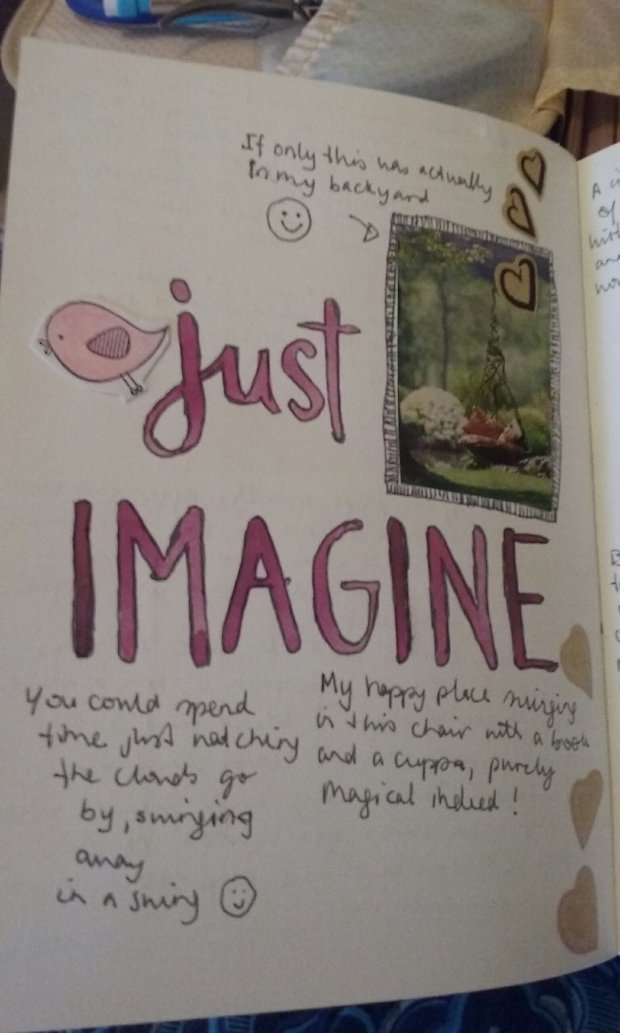 If only this was actually
in my backyard
just
IMAGINE
You could spend
time just watching
the clouds go
by, swinging
away
in a swing
My happy place swinging
in this chair with a book
and a cuppa, purely
magical indeed!
A
of